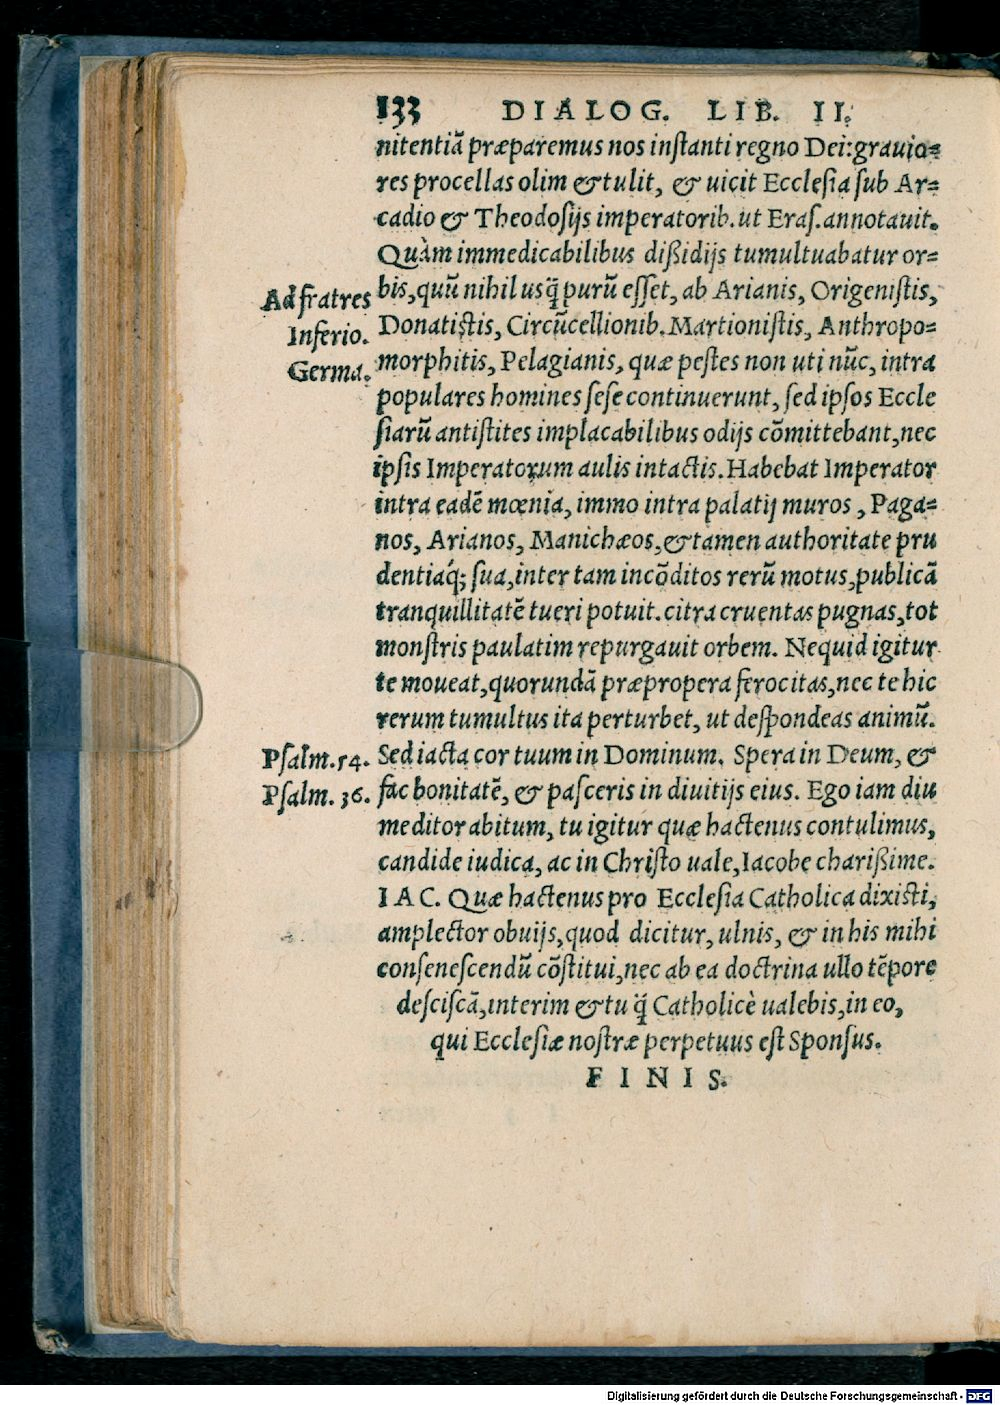 133 DIALOG. LIB. II.
nitentiã præparemus nos inſtanti regno Dei: grauio=
res procellas olim & tulit, & uicit Eccleſia ſub Ar=
cadio & Theodoſijs imperatorib. ut Eraſ. annotauit.
Quàm immedicabilibus dißidijs tumultuabatur or=
Ad fratres
Inferio.
Germa.
bis, quũ nihil usq̃ purũ eſſet, ab Arianis, Origeniſtis,
Donatiſtis, Circũcellionib. Martioniſtis, Anthropo=
morphitis, Pelagianis, quæ peſtes non uti nũc, intra
populares homines ſeſe continuerunt, ſed ipſos Eccle
ſiarũ antiſtites implacabilibus odijs cõmittebant, nec
ipſis Imperatorum aulis intactis. Habebat Imperator
intra eadẽ mœnia, immo intra palatij muros, Paga=
nos, Arianos, Manichæos, & tamen authoritate pru
dentiaq́; ſua, inter tam incõditos rerũ motus, publicã
tranquillitatẽ tueri potuit. citra cruentas pugnas, tot
monſtris paulatim repurgauit orbem. Nequid igitur
te moueat, quorundã præpropera ferocitas, nec te hic
rerum tumultus ita perturbet, ut deſpondeas animũ.
Pſalm. 54.
Pſalm. 36.
Sed iacta cor tuum in Dominum. Spera in Deum, &
fac bonitatẽ, & paſceris in diuitijs eius. Ego iam diu
meditor abitum, tu igitur quæ hactenus contulimus,
candide iudica, ac in Chriſto uale, Iacobe charißime.
IAC. Quæ hactenus pro Eccleſia Catholica dixiſti,
amplector obuijs, quod dicitur, ulnis, & in his mihi
conſeneſcendũ cõſtitui, nec ab ea doctrina ullo tẽpore
deſciſcã, interim & tu q̃ Catholicè ualebis, in eo,
qui Eccleſiæ noſtræ perpetuus eſt Sponſus.
FINIS.
Digitalisierung gefördert durch die Deutsche Forschungsgemeinschaft - DFG